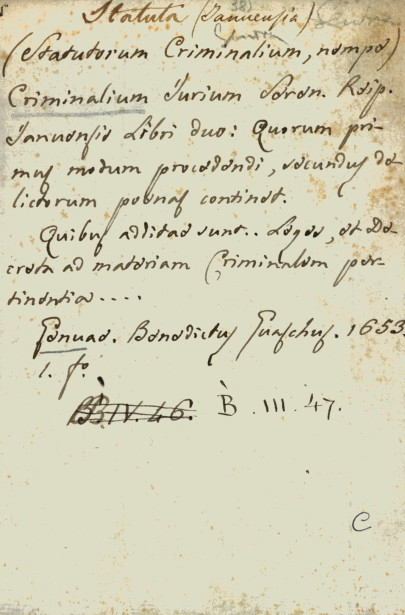 Statuta (Januensia)
(Statutorum Criminalium, nempe)
Criminalium Jurium Seren. Reip.
Januensis Libri duo: Quorum pri-
mus modum procedendi, secundus de-
lictorum poenas continet.
Quibus additae sunt.. Leges, et De-
creta ad materiam Criminalem per-
tinentia....
Genuae. Benedictus Guaschus. 1653.
1. fo.
BB IV. 46. B. III. 47.
C